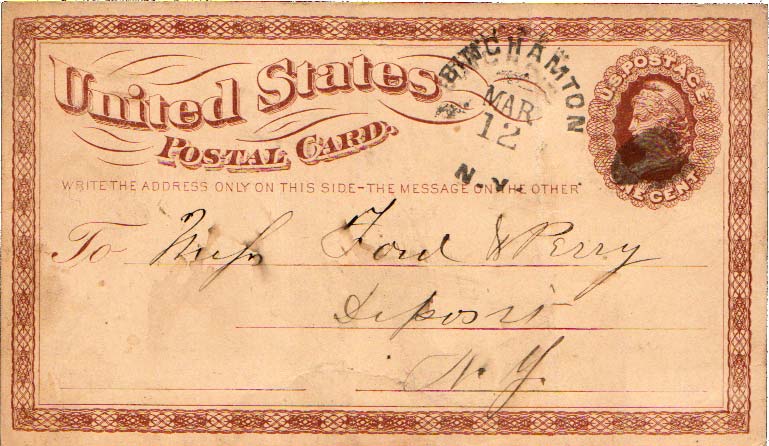 United States
POSTAL CARD.
WRITE THE ADDRESS ONLY ON THIS SIDE-THE MESSAGE ON THE OTHER
BINGHAMTON
MAR
12
N.Y.
U.S. POSTAGE
ONE CENT
To Mess Ford & Perry
Deposit
N.Y.